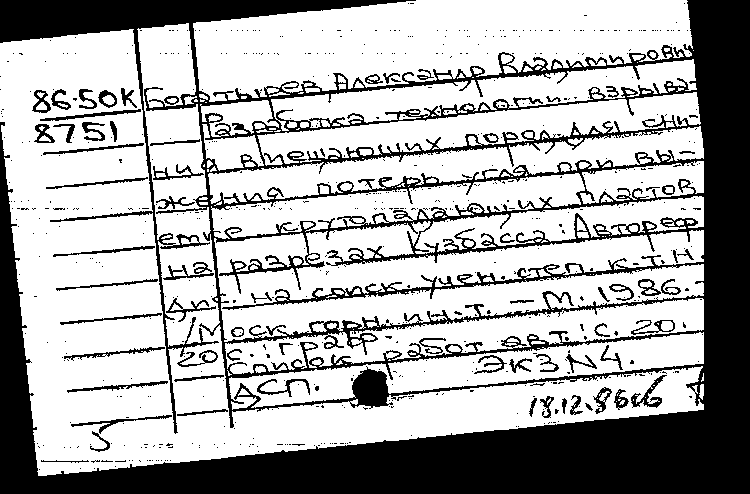 86-50К Богатырев, Александр Владимирович
8751 Разработка технологии взрыва-
ния вмещающих пород для сни-
жения потерь угля при вы-
емке крутопадающих пластов
на разрезах Кузбасса: Автореф.
дис. на соиск. учен. степ. к.т.н.
/Моск. горн. ин-т. – М., 1986. –
20 с.: граф.
Список работ авт.: с. 20.
ДСП. Экз N4.
18.12.86
5